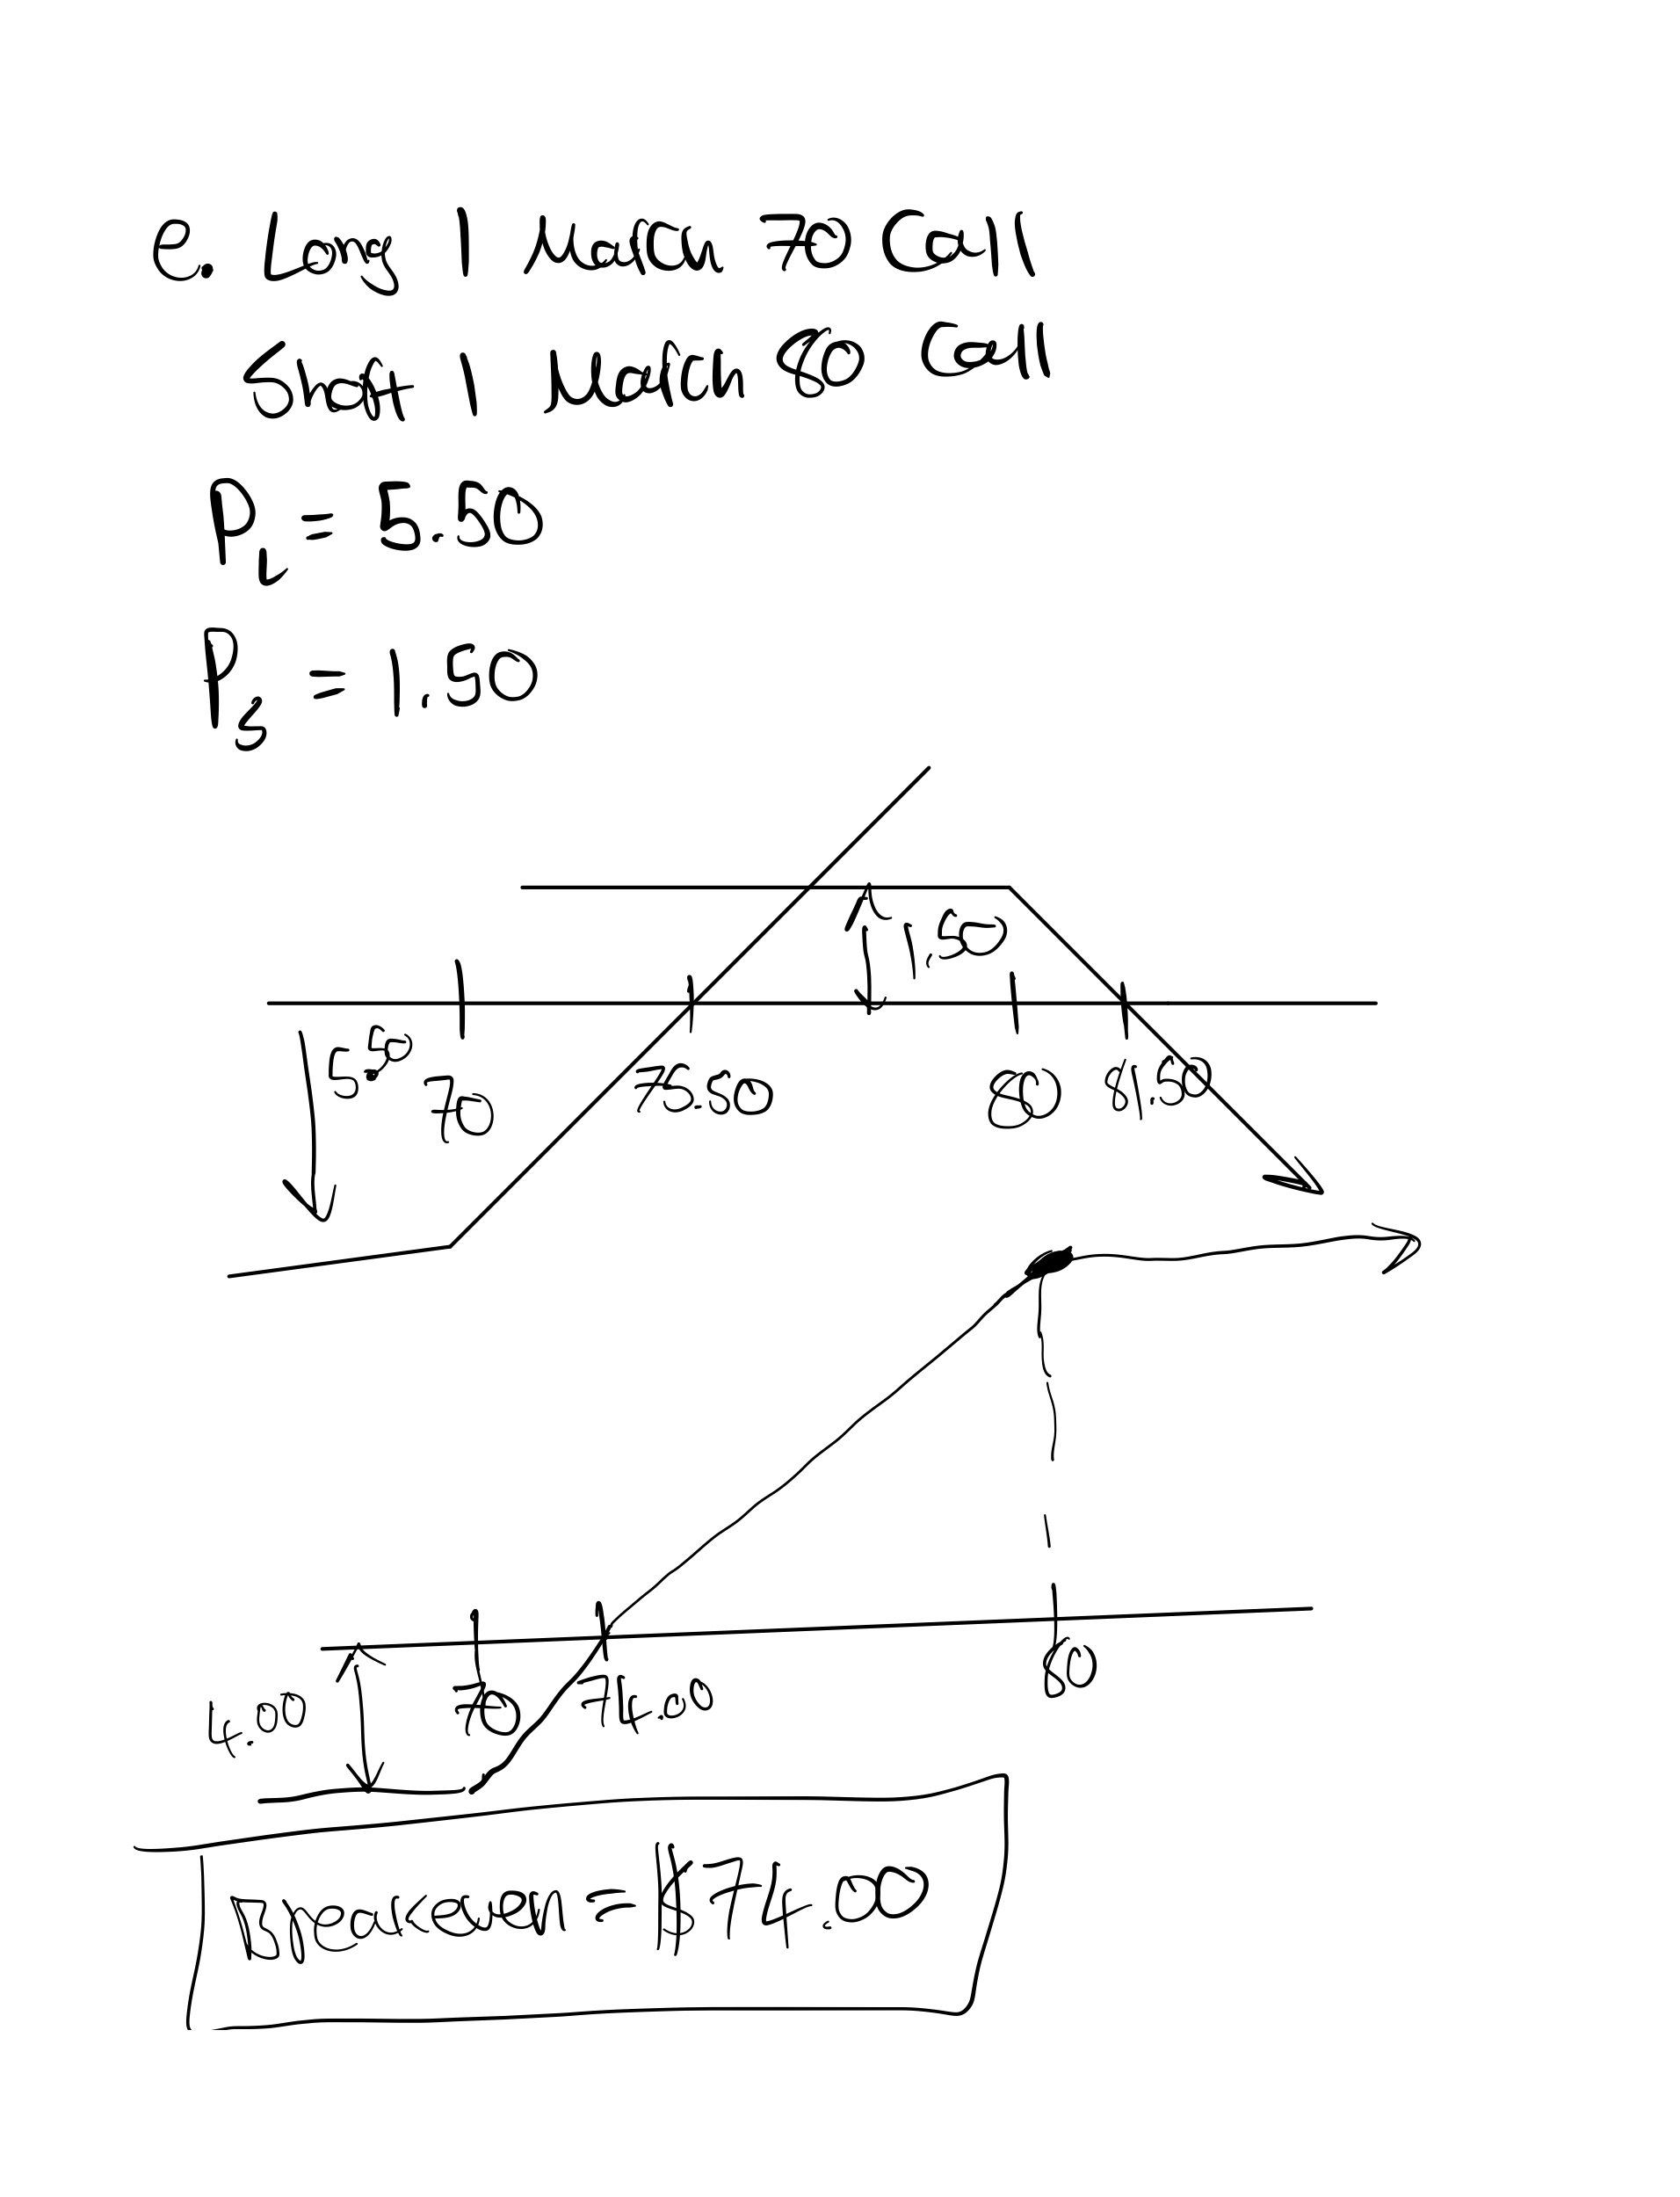 e. Long 1 March 70 Call
Short 1 March 80 Call
PL = 5.50
Ps = 1.50
1.50
5.50
70
75.50
80
81.50
4.00
70
74.00
80
Breakeven = $74.00